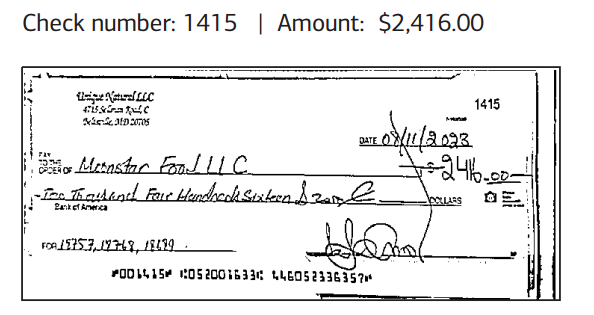 Check number: 1415 | Amount: $2,416.00
Unique Natural LLC
1415
DATE 08/11/2023
PAY TO THE ORDER OF Monstar Food LLC
$ 2416.00
Two Thousand Four Hundred Sixteen & Zero
DOLLARS
Bank of America
FOR 18757, 18768, 18699
⑈001415⑈ ⑆052001633⑆ 446052336357⑈